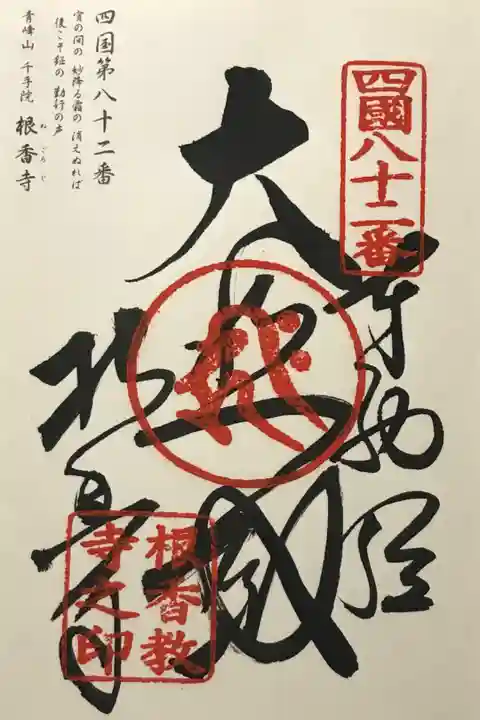 四国第八十二番
宵の間の 妙降る霜の 消えぬれば
後こそ鉦の 勤行の声
青峰山 千手院 根香寺
ねごろじ
四國八十二番
奉納経
大悲殿
根香寺
根香教
寺之印